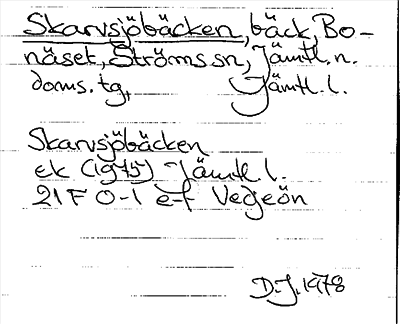 Skarvsjöbäcken, bäck, Bo-
näset, Ströms sn, Jämtl. n.
doms. tg, Jämtl. l.
Skarvsjöbäcken
ek (1975) Jämtl l.
21F 0-1 e-f Vegeön
D.J. 1978